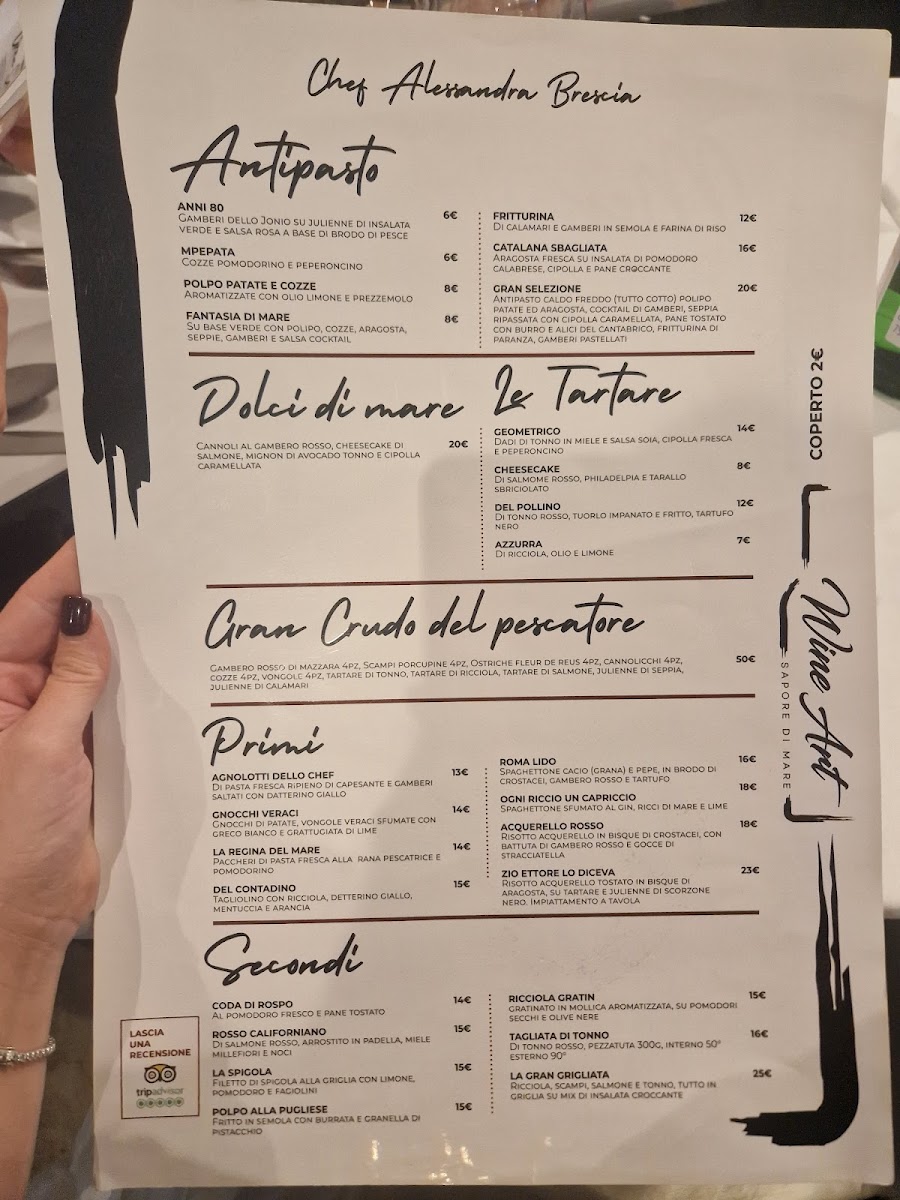 Chef Alessandra Brescia
Antipasto
ANNI 80 6€
GAMBERI DELLO JONIO SU JULIENNE DI INSALATA
VERDE E SALSA ROSA A BASE DI BRODO DI PESCE
MPEPATA 6€
COZZE POMODORINO E PEPERONCINO
POLPO PATATE E COZZE 8€
AROMATIZZATE CON OLIO LIMONE E PREZZEMOLO
FANTASIA DI MARE 8€
SU BASE VERDE CON POLIPO, COZZE, ARAGOSTA,
SEPPIE, GAMBERI E SALSA COCKTAIL
FRITTURINA 12€
DI CALAMARI E GAMBERI IN SEMOLA E FARINA DI RISO
CATALANA SBAGLIATA 16€
ARAGOSTA FRESCA SU INSALATA DI POMODORO
CALABRESE, CIPOLLA E PANE CROCCANTE
GRAN SELEZIONE 20€
ANTIPASTO CALDO FREDDO (TUTTO COTTO) POLIPO
PATATE ED ARAGOSTA, COCKTAIL DI GAMBERI, SEPPIA
RIPASSATA CON CIPOLLA CARAMELLATA, PANE TOSTATO
CON BURRO E ALICI DEL CANTABRICO, FRITTURINA DI
PARANZA, GAMBERI PASTELLATI
Dolci di mare
CANNOLI AL GAMBERO ROSSO, CHEESECAKE DI 20€
SALMONE, MIGNON DI AVOCADO TONNO E CIPOLLA
CARAMELLATA
Le Tartare
GEOMETRICO 14€
DADI DI TONNO IN MIELE E SALSA SOIA, CIPOLLA FRESCA
E PEPERONCINO
CHEESECAKE 8€
DI SALMOME ROSSO, PHILADELPIA E TARALLO
SBRICIOLATO
DEL POLLINO 12€
DI TONNO ROSSO, TUORLO IMPANATO E FRITTO, TARTUFO
NERO
AZZURRA 7€
DI RICCIOLA, OLIO E LIMONE
Gran Crudo del pescatore
GAMBERO ROSSO DI MAZZARA 4PZ, SCAMPI PORCUPINE 4PZ, OSTRICHE FLEUR DE REUS 4PZ, CANNOLICCHI 4PZ, 50€
COZZE 4PZ, VONGOLE 4PZ, TARTARE DI TONNO, TARTARE DI RICCIOLA, TARTARE DI SALMONE, JULIENNE DI SEPPIA,
JULIENNE DI CALAMARI
Primi
AGNOLOTTI DELLO CHEF 13€
DI PASTA FRESCA RIPIENO DI CAPESANTE E GAMBERI
SALTATI CON DATTERINO GIALLO
GNOCCHI VERACI 14€
GNOCCHI DI PATATE, VONGOLE VERACI SFUMATE CON
GRECO BIANCO E GRATTUGIATA DI LIME
LA REGINA DEL MARE 14€
PACCHERI DI PASTA FRESCA ALLA RANA PESCATRICE E
POMODORINO
DEL CONTADINO 15€
TAGLIOLINO CON RICCIOLA, DETTERINO GIALLO,
MENTUCCIA E ARANCIA
ROMA LIDO 16€
SPAGHETTONE CACIO (GRANA) E PEPE, IN BRODO DI
CROSTACEI, GAMBERO ROSSO E TARTUFO
OGNI RICCIO UN CAPRICCIO 18€
SPAGHETTONE SFUMATO AL GIN, RICCI DI MARE E LIME
ACQUERELLO ROSSO 18€
RISOTTO ACQUERELLO IN BISQUE DI CROSTACEI, CON
BATTUTA DI GAMBERO ROSSO E GOCCE DI
STRACCIATELLA
ZIO ETTORE LO DICEVA 23€
RISOTTO ACQUERELLO TOSTATO IN BISQUE DI
ARAGOSTA, SU TARTARE E JULIENNE DI SCORZONE
NERO. IMPIATTAMENTO A TAVOLA
Secondi
CODA DI ROSPO 14€
AL POMODORO FRESCO E PANE TOSTATO
ROSSO CALIFORNIANO 15€
DI SALMONE ROSSO, ARROSTITO IN PADELLA, MIELE
MILLEFIORI E NOCI
LA SPIGOLA 15€
FILETTO DI SPIGOLA ALLA GRIGLIA CON LIMONE,
POMODORO E FAGIOLINI
POLPO ALLA PUGLIESE 15€
FRITTO IN SEMOLA CON BURRATA E GRANELLA DI
PISTACCHIO
RICCIOLA GRATIN 15€
GRATINATO IN MOLLICA AROMATIZZATA, SU POMODORI
SECCHI E OLIVE NERE
TAGLIATA DI TONNO 16€
DI TONNO ROSSO, PEZZATUTA 300G, INTERNO 50°
ESTERNO 90°
LA GRAN GRIGLIATA 25€
RICCIOLA, SCAMPI, SALMONE E TONNO, TUTTO IN
GRIGLIA SU MIX DI INSALATA CROCCANTE
COPERTO 2€
Wine Art
SAPORE DI MARE
LASCIA
UNA
RECENSIONE
tripadvisor